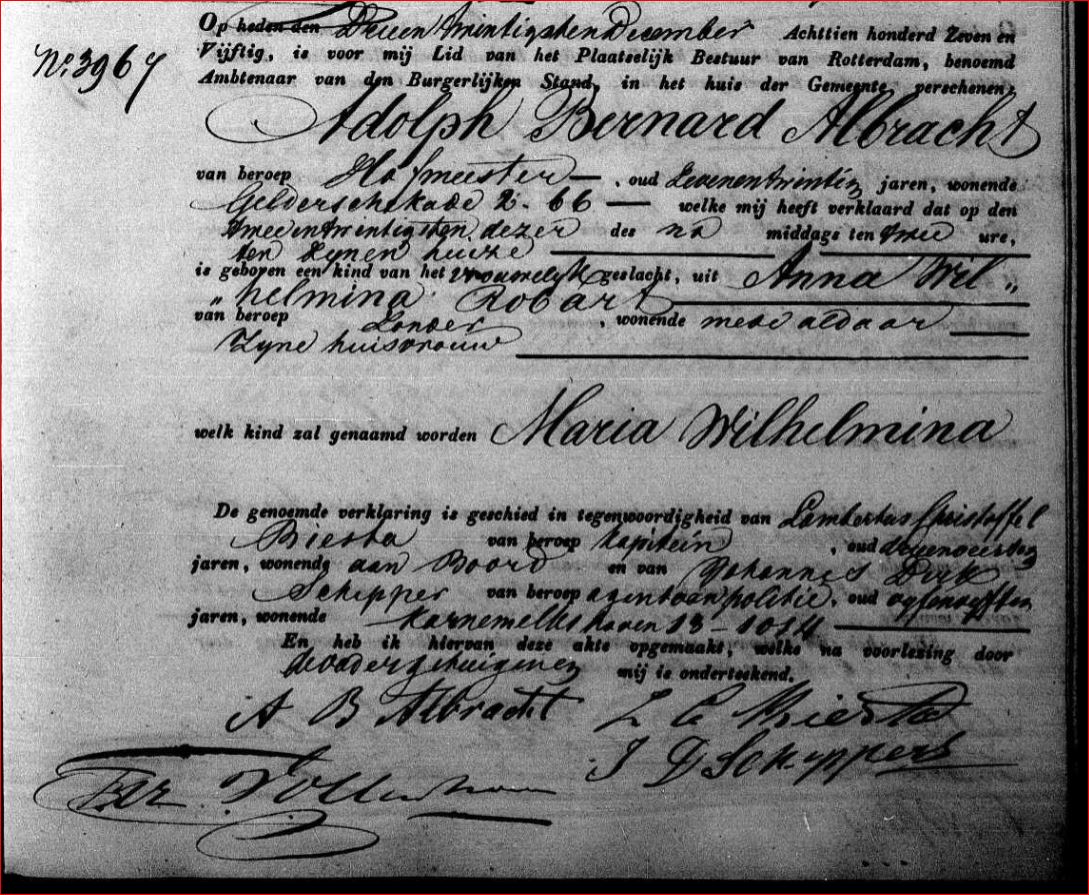 No. 3967
Op heden den Drieentwintigsten December Achttien honderd Zeven en
Vijftig, is voor mij Lid van het Plaatselijk Bestuur van Rotterdam, benoemd
Ambtenaar van den Burgerlijken Stand, in het huis der Gemeente verschenen:
Adolph Bernard Albracht
van beroep Hofmeester — , oud Zevenentwintig jaren, wonende
Gelderschekade 2-66 — welke mij heeft verklaard dat op den
tweeentwintigsten dezer des na middags ten twee ure,
ten zynen huize
is geboren een kind van het vrouwelyk geslacht, uit Anna Wil„
„helmina Robart
van beroep Zonder , wonende mede aldaar
Zyne huisvrouw
welk kind zal genaamd worden Maria Wilhelmina
De genoemde verklaring is geschied in tegenwoordigheid van Lambertus Christoffel
van beroep kapitein , oud drieenveertig
jaren, wonende aan Boord en van Johannes Dirk
Schippers van beroep agent van politie, oud
jaren, wonende Karnemelkshaven 13-1014
En heb ik hiervan deze akte opgemaakt, welke na voorlezing door
de ondergetuigenen mij is onderteekend.
A B Albracht L C
J D Schippers